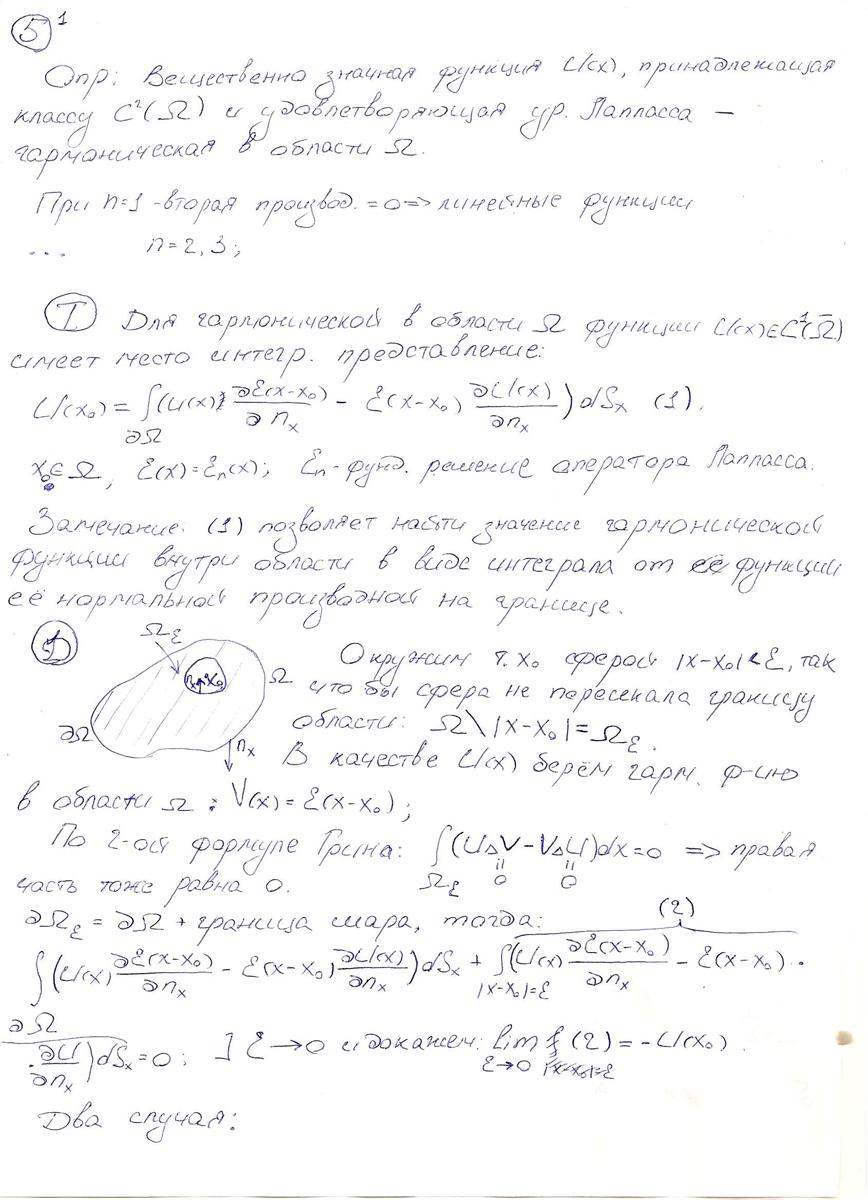 5 1
Опр: Вещественно значная функция U(x), принадлежащая
классу C²(Ω) и удовлетворяющая ур. Лапласса –
гармоническая в области Ω.
При n=1 - вторая производ. =0 => линейные функции
... n=2,3;
Т Для гармонической в области Ω функции U(x)∈C¹(Ω̄)
имеет место интегр. представление:
U(x₀) = ∫_{∂Ω} (U(x) ∂Ɛ(x-x₀)/∂n_x - Ɛ(x-x₀) ∂U(x)/∂n_x) dS_x (1).
x₀∈Ω, Ɛ(x)=Ɛn(x); Ɛn - фунд. решение оператора Лапласса.
Замечание: (1) позволяет найти значение гармонической
функции внутри области в виде интеграла от её функции
её нормальной производной на границе.
Ω_Ɛ
Д x₀ Ω ∂Ω n_x
Окружим т. x₀ сферой |x-x₀|<Ɛ, так
что бы сфера не пересекала границу
области: Ω\|x-x₀|=Ω_Ɛ.
В качестве U(x) берём гарм. ф-ию
в области Ω: V(x)=Ɛ(x-x₀);
По 2-ой формуле Грина: ∫_{Ω_Ɛ} (UΔV-VΔU)dx=0 => правая
часть тоже равна 0. = 0 = 0
∂Ω_Ɛ = ∂Ω + граница шара, тогда: (2)
∫(U(x) ∂Ɛ(x-x₀)/∂n_x - Ɛ(x-x₀) ∂U(x)/∂n_x) dS_x + ∫_{|x-x₀|=Ɛ} (U(x) ∂Ɛ(x-x₀)/∂n_x - Ɛ(x-x₀) ·
∂Ω
· ∂U/∂n_x) dS_x=0; ] Ɛ→0 и докажем: lim_{Ɛ→0} (2) = -U(x₀).
Два случая: